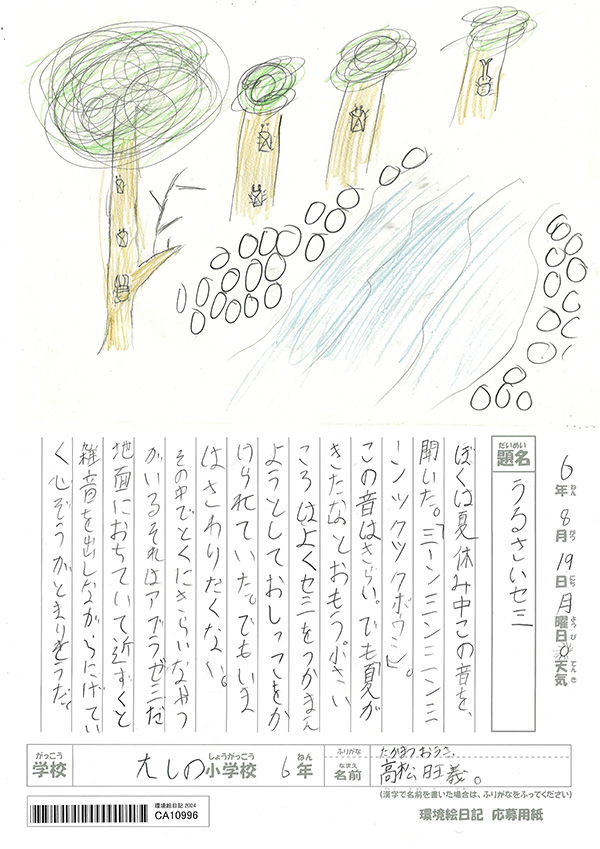 6年8月19日月曜日 天気
ねん がつ にち ようび てんき
だいめい
題名
うるさいセミ
ぼくは夏休み中この音を、
聞いた。「ミーンミンミンミ
ーンツクツクボウシ」。
この音はきらい。でも夏が
きたなとおもう小さい
ころはよくセミをつかまえ
ようとしておしっこをか
けられていた。でもいま
はさわりたくない。
その中でとくにきらいなやつ
がいるそれはアブラゼミだ
地面におちていて近ずくと
雑音を出しながらにげてい
く心ぞうがとまりそうだ。
がっこう
学校
たしの小学校 6年
しょうがっこう ねん
ふりがな
なまえ
名前
たかまつおうぎ
高松旺義。
(漢字で名前を書いた場合は、ふりがなをふってください)
環境絵日記 2024
CA10996
環境絵日記 応募用紙